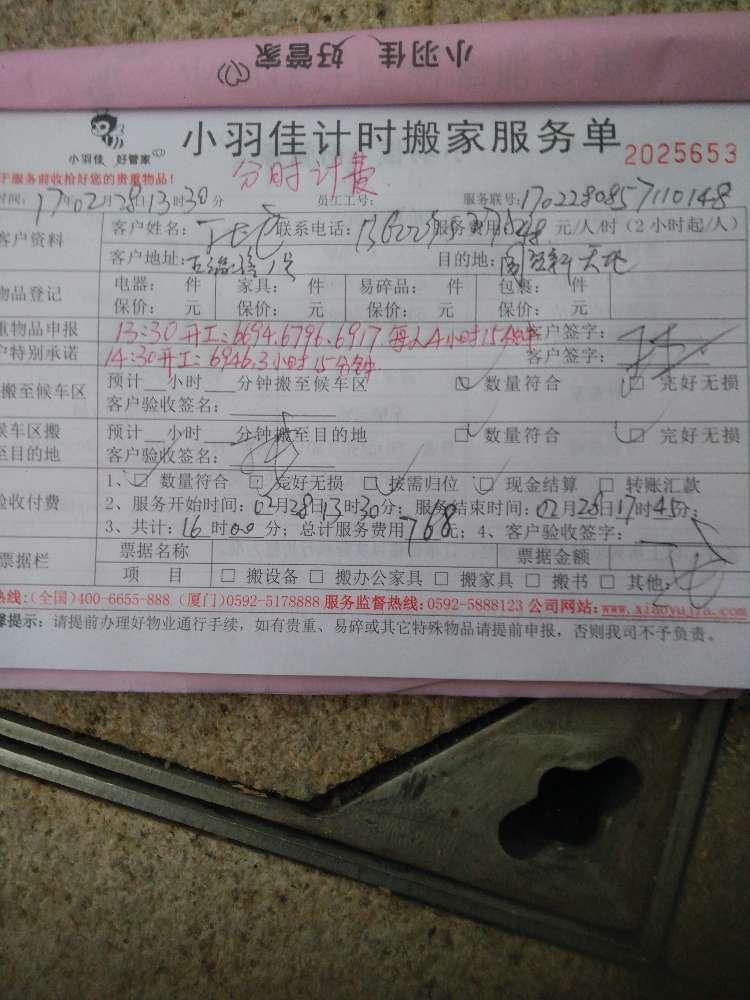 小羽佳 好管家
小羽佳 好管家
小羽佳计时搬家服务单
2025653
于服务前收拾好您的贵重物品!
分时计费
时间: 17年02月28日13时30分 员工工号: 服务联号: 1702280857110148
客户资料 客户姓名: 联系电话: 服务费用: 48 元/人/时 (2小时起/人)
客户地址: 目的地:
物品登记 电器: 件 家具: 件 易碎品: 件 包裹: 件
保价: 元 保价: 元 保价: 元 保价: 元
重物品申报 13:30开工: 6694.6796.6917.每人4小时15分钟 客户签字:
户特别承诺 14:30开工: 6946.3小时15分钟 客户签字:
搬至候车区 预计__小时__分钟搬至候车区 数量符合 完好无损
客户验收签名:
候车区搬至目的地 预计__小时__分钟搬至目的地 数量符合 完好无损
客户验收签名:
验收付费 1、 数量符合 完好无损 按需归位 现金结算 转账汇款
2、服务开始时间: 02月28日13时30分; 服务结束时间: 02月28日17时45分;
3、共计: 16时00分; 总计服务费用768元; 4、客户验收签字:
票据栏 票据名称 票据金额
项 目 搬设备 搬办公家具 搬家具 搬书 其他:
热线:(全国)400-6655-888 (厦门)0592-5178888 服务监督热线:0592-5888123 公司网站:www.xiaoyujia.com
馨提示: 请提前办理好物业通行手续, 如有贵重、易碎或其它特殊物品请提前申报, 否则我司不予负责。